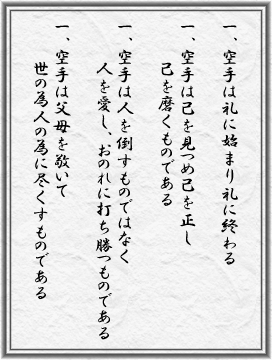 一、空手は礼に始まり礼に終わる
一、空手は己を見つめ己を正し
己を磨くものである
一、空手は人を倒すものではなく
人を愛し、おのれに打ち勝つものである
一、空手は父母を敬いて
世の為人の為に尽くすものである